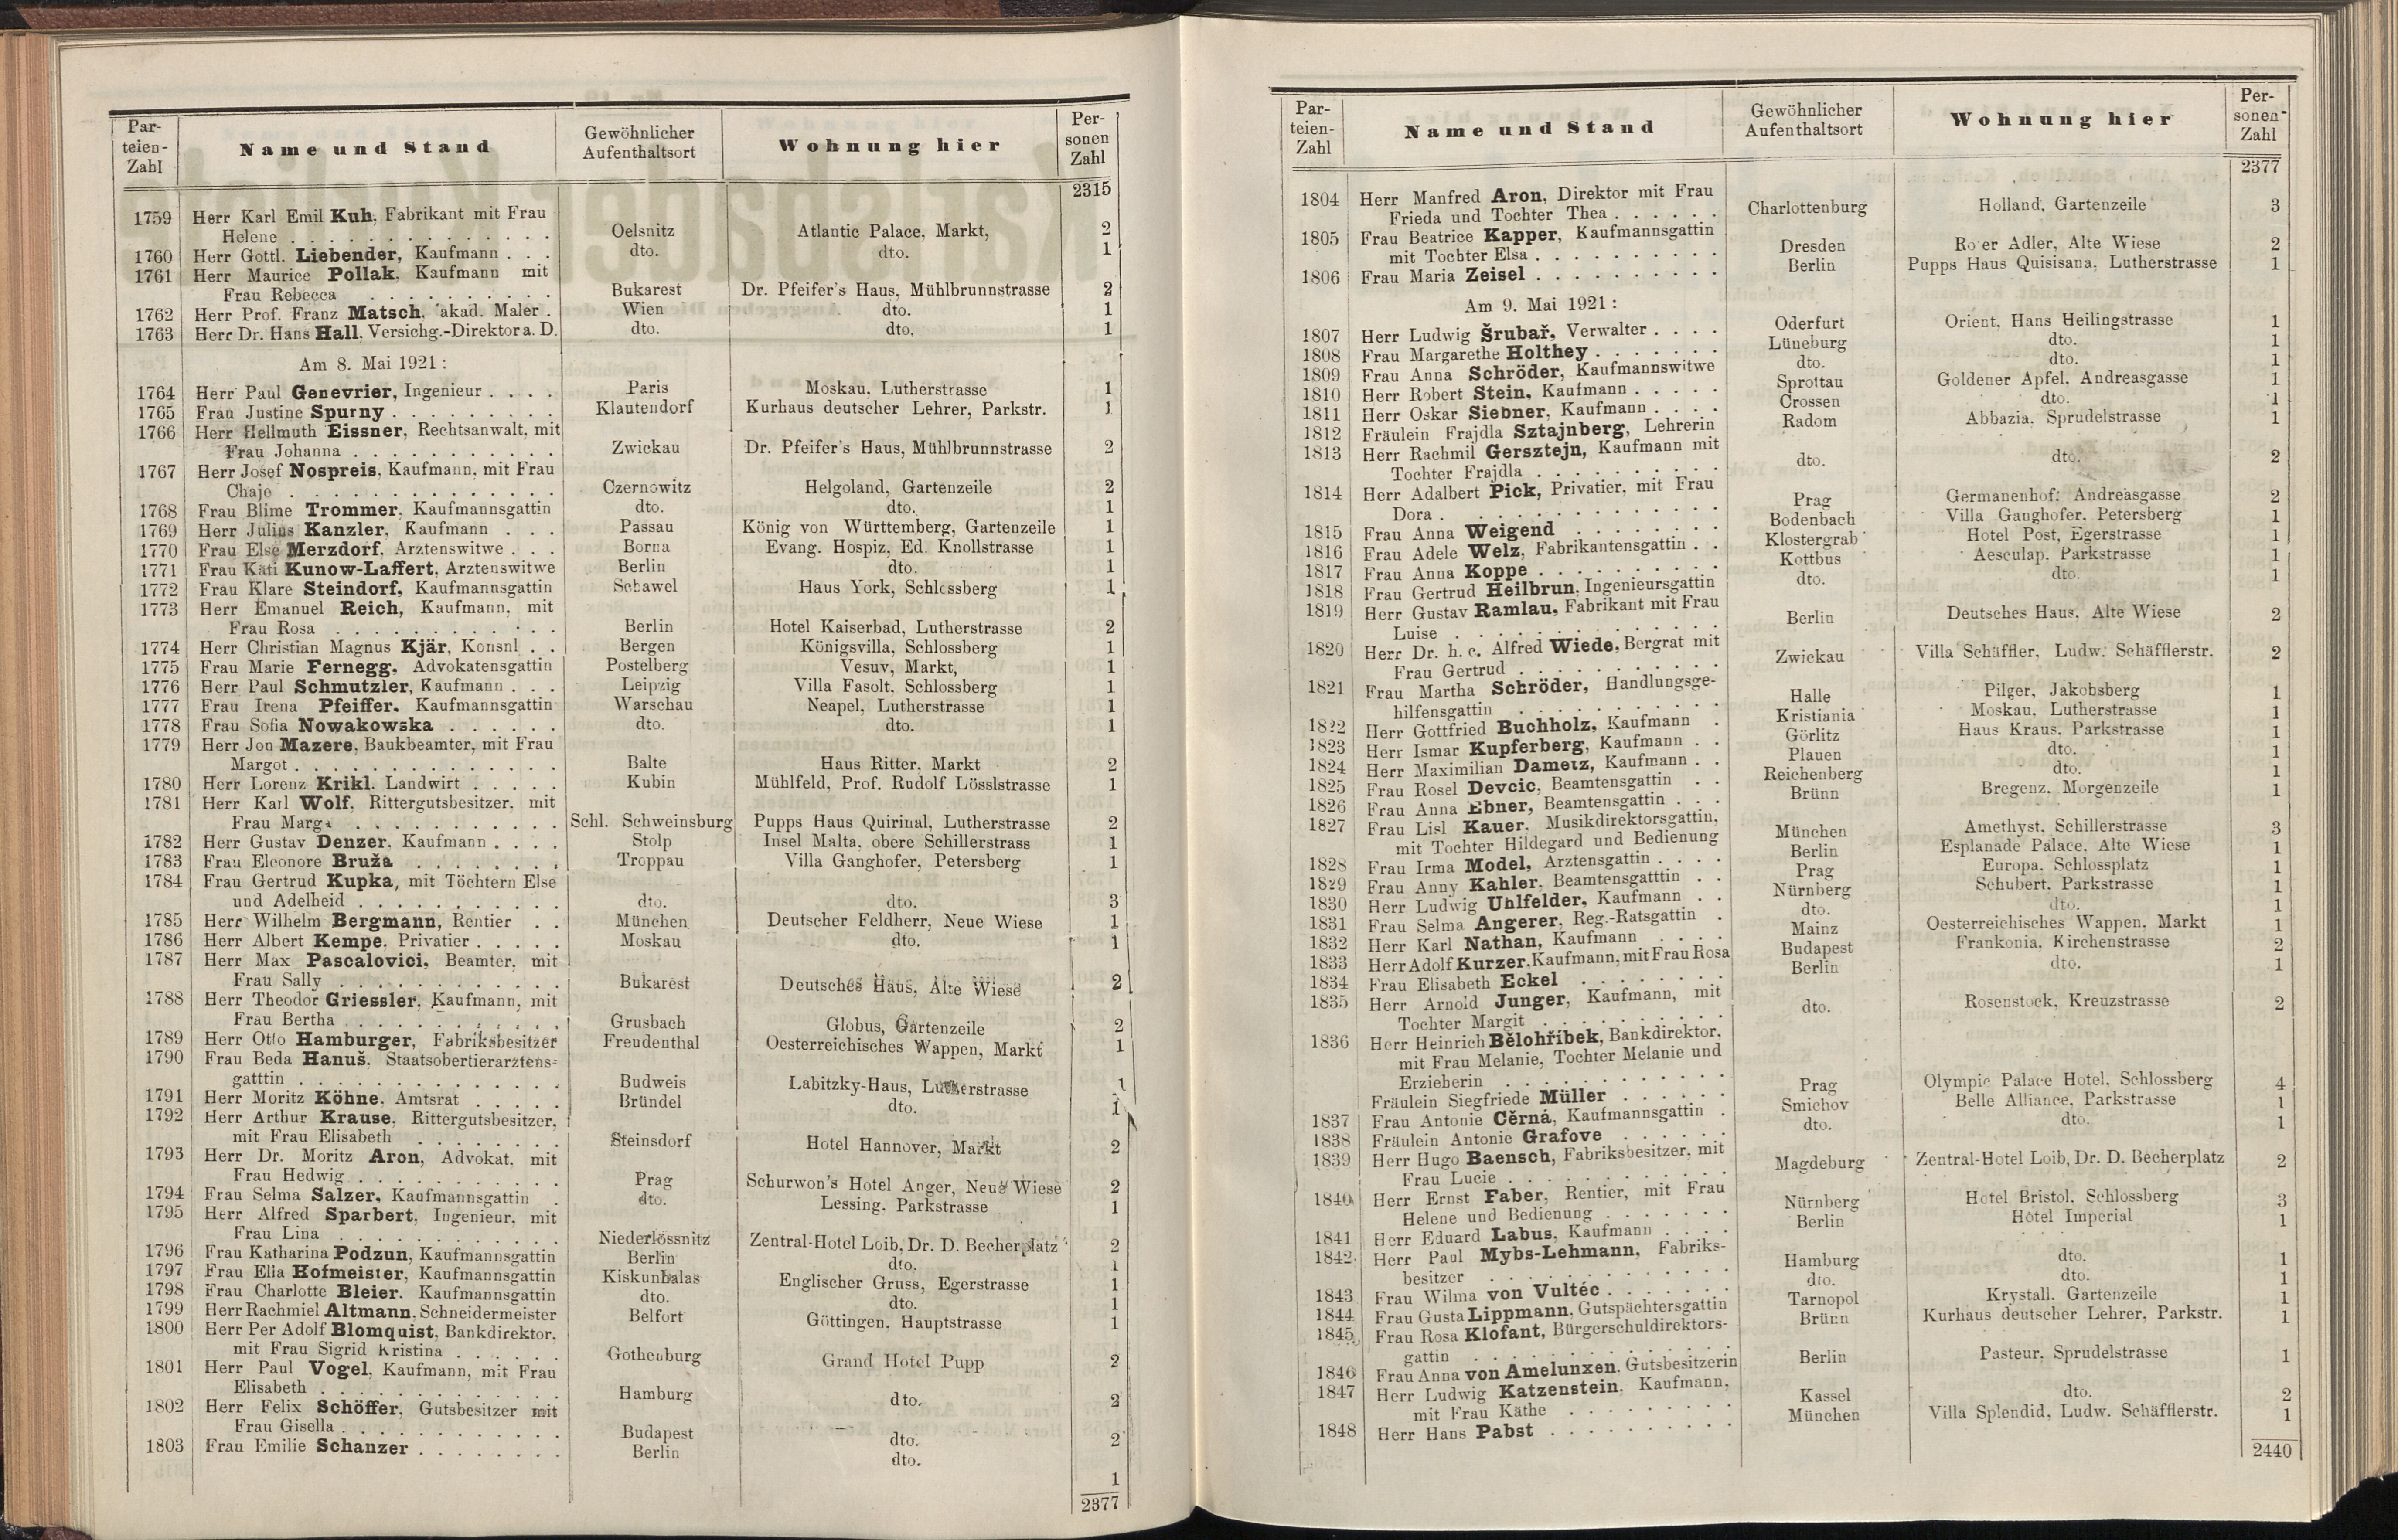 Par-
teien-
Zahl
Name und Stand
Gewöhnlicher
Aufenthaltsort
Wohnung hier
Per-
sonen
Zahl
2315
1759 Herr Karl Emil Kuh, Fabrikant mit Frau
Helene . . . Oelsnitz Atlantic Palace, Markt, 2
1760 Herr Gottl. Liebender, Kaufmann . . . dto. dto. 1
1761 Herr Maurice Pollak, Kaufmann mit
Frau Rebecca . . . Bukarest Dr. Pfeifer's Haus, Mühlbrunnstrasse 2
1762 Herr Prof. Franz Matsch, akad. Maler . Wien dto. 1
1763 Herr Dr. Hans Hall, Versichg.-Direktor a. D. dto. dto. 1
Am 8. Mai 1921:
1764 Herr Paul Genevrier, Ingenieur . . . . Paris Moskau, Lutherstrasse 1
1765 Frau Justine Spurny . . . Klautendorf Kurhaus deutscher Lehrer, Parkstr. 1
1766 Herr Hellmuth Eissner, Rechtsanwalt, mit
Frau Johanna . . . Zwickau Dr. Pfeifer's Haus, Mühlbrunnstrasse 2
1767 Herr Josef Nospreis, Kaufmann, mit Frau
Chaje . . . Czernowitz Helgoland, Gartenzeile 2
1768 Frau Blime Trommer, Kaufmannsgattin dto. dto. 1
1769 Herr Julius Kanzler, Kaufmann . . . Passau König von Württemberg, Gartenzeile 1
1770 Frau Else Merzdorf, Arztenswitwe . . . Borna Evang. Hospiz, Ed. Knollstrasse 1
1771 Frau Kati Kunow-Laffert, Arztenswitwe Berlin dto. 1
1772 Frau Klare Steindorf, Kaufmannsgattin Schawel Haus York, Schlossberg 1
1773 Herr Emanuel Reich, Kaufmann, mit
Frau Rosa . . . Berlin Hotel Kaiserbad, Lutherstrasse 2
1774 Herr Christian Magnus Kjär, Konsnl . . Bergen Königsvilla, Schlossberg 1
1775 Frau Marie Fernegg, Advokatensgattin Postelberg Vesuv, Markt, 1
1776 Herr Paul Schmutzler, Kaufmann . . . Leipzig Villa Fasolt, Schlossberg 1
1777 Frau Irena Pfeiffer, Kaufmannsgattin Warschau Neapel, Lutherstrasse 1
1778 Frau Sofia Nowakowska . . . dto. dto. 1
1779 Herr Jon Mazere, Baukbeamter, mit Frau
Margot . . . Balte Haus Ritter, Markt 2
1780 Herr Lorenz Krikl, Landwirt . . . Kubin Mühlfeld, Prof. Rudolf Lösslstrasse 1
1781 Herr Karl Wolf, Rittergutsbesitzer, mit
Frau Marga . . . Schl. Schweinsburg Pupps Haus Quirinal, Lutherstrasse 2
1782 Herr Gustav Denzer, Kaufmann . . . . Stolp Insel Malta, obere Schillerstrass 1
1783 Frau Eleonore Bruža . . . Troppau Villa Ganghofer, Petersberg 1
1784 Frau Gertrud Kupka, mit Töchtern Else
und Adelheid . . . dto. dto. 3
1785 Herr Wilhelm Bergmann, Rentier . . München Deutscher Feldherr, Neue Wiese 1
1786 Herr Albert Kempe, Privatier . . . Moskau dto. 1
1787 Herr Max Pascalovici, Beamter, mit
Frau Sally . . . Bukarest Deutsches Haus, Alte Wiese 2
1788 Herr Theodor Griessler, Kaufmann, mit
Frau Bertha . . . Grusbach Globus, Gartenzeile 2
1789 Herr Otto Hamburger, Fabriksbesitzer Freudenthal Oesterreichisches Wappen, Markt 1
1790 Frau Beda Hanuš, Staatsobertierarztens-
gatttin . . . Budweis Labitzky-Haus, Lutherstrasse 1
1791 Herr Moritz Köhne, Amtsrat . . . Bründel dto. 1
1792 Herr Arthur Krause, Rittergutsbesitzer,
mit Frau Elisabeth . . . Steinsdorf Hotel Hannover, Markt 2
1793 Herr Dr. Moritz Aron, Advokat, mit
Frau Hedwig . . . Prag Schurwon's Hotel Anger, Neue Wiese 2
1794 Frau Selma Salzer, Kaufmannsgattin . dto. Lessing, Parkstrasse 1
1795 Herr Alfred Sparbert, Ingenieur, mit
Frau Lina . . . Niederlössnitz Zentral-Hotel Loib, Dr. D. Becherplatz 2
1796 Frau Katharina Podzun, Kaufmannsgattin Berlin dto. 1
1797 Frau Ella Hofmeister, Kaufmannsgattin Kiskunhalas Englischer Gruss, Egerstrasse 1
1798 Frau Charlotte Bleier, Kaufmannsgattin dto. dto. 1
1799 Herr Rachmiel Altmann, Schneidermeister Belfort Göttingen, Hauptstrasse 1
1800 Herr Per Adolf Blomquist, Bankdirektor,
mit Frau Sigrid Kristina . . . Gothenburg Grand Hotel Pupp 2
1801 Herr Paul Vogel, Kaufmann, mit Frau
Elisabeth . . . Hamburg dto. 2
1802 Herr Felix Schöffer, Gutsbesitzer mit
Frau Gisella . . . Budapest dto. 2
1803 Frau Emilie Schanzer . . . Berlin dto. 1
2377
Par-
teien-
Zahl
Name und Stand
Gewöhnlicher
Aufenthaltsort
Wohnung hier
Per-
sonen-
Zahl
2377
1804 Herr Manfred Aron, Direktor mit Frau
Frieda und Tochter Thea . . . Charlottenburg Holland, Gartenzeile 3
1805 Frau Beatrice Kapper, Kaufmannsgattin
mit Tochter Elsa . . . Dresden Ro er Adler, Alte Wiese 2
1806 Frau Maria Zeisel . . . Berlin Pupps Haus Quisisana, Lutherstrasse 1
Am 9. Mai 1921:
1807 Herr Ludwig Šrubař, Verwalter . . . . Oderfurt Orient, Hans Heilingstrasse 1
1808 Frau Margarethe Holthey . . . Lüneburg dto. 1
1809 Frau Anna Schröder, Kaufmannswitwe dto. dto. 1
1810 Herr Robert Stein, Kaufmann . . . Sprottau Goldener Apfel, Andreasgasse 1
1811 Herr Oskar Siebner, Kaufmann . . . . Crossen dto. 1
1812 Fräulein Frajdla Sztajnberg, Lehrerin Radom Abbazia, Sprudelstrasse 1
1813 Herr Rachmil Gersztejn, Kaufmann mit
Tochter Frajdla . . . dto. dto. 2
1814 Herr Adalbert Pick, Privatier, mit Frau
Dora . . . Prag Germanenhof, Andreasgasse 2
1815 Frau Anna Weigend . . . Bodenbach Villa Ganghofer, Petersberg 1
1816 Frau Adele Welz, Fabrikantensgattin . . Klostergrab Hotel Post, Egerstrasse 1
1817 Frau Anna Koppe . . . Kottbus Aesculap, Parkstrasse 1
1818 Frau Gertrud Heilbrun, Ingenieursgattin dto. dto. 1
1819 Herr Gustav Ramlau, Fabrikant mit Frau
Luise . . . Berlin Deutsches Haus, Alte Wiese 2
1820 Herr Dr. h. c. Alfred Wiede, Bergrat mit
Frau Gertrud . . . Zwickau Villa Schäffler, Ludw. Schäfflerstr. 2
1821 Frau Martha Schröder, Handlungsge-
hilfensgattin . . . Halle Pilger, Jakobsberg 1
1822 Herr Gottfried Buchholz, Kaufmann . Kristiania Moskau, Lutherstrasse 1
1823 Herr Ismar Kupferberg, Kaufmann . . Görlitz Haus Kraus, Parkstrasse 1
1824 Herr Maximilian Dametz, Kaufmann . . Plauen dto. 1
1825 Frau Rosel Devcic, Beamtensgattin . . Reichenberg dto. 1
1826 Frau Anna Ebner, Beamtensgattin . . . Brünn Bregenz, Morgenzeile 1
1827 Frau Lisl Kauer, Musikdirektorsgattin,
mit Tochter Hildegard und Bedienung München Amethyst, Schillerstrasse 3
1828 Frau Irma Model, Arztensgattin . . . . Berlin Esplanade Palace, Alte Wiese 1
1829 Frau Anny Kahler, Beamtensgatttin . . Prag Europa, Schlossplatz 1
1830 Herr Ludwig Uhlfelder, Kaufmann . . Nürnberg Schubert, Parkstrasse 1
1831 Frau Selma Angerer, Reg.-Ratsgattin . dto. dto. 1
1832 Herr Karl Nathan, Kaufmann . . . . Mainz Oesterreichisches Wappen, Markt 1
1833 Herr Adolf Kurzer, Kaufmann, mit Frau Rosa Budapest Frankonia, Kirchenstrasse 2
1834 Frau Elisabeth Eckel . . . Berlin dto. 1
1835 Herr Arnold Junger, Kaufmann, mit
Tochter Margit . . . dto. Rosenstock, Kreuzstrasse 2
1836 Herr Heinrich Bělohřibek, Bankdirektor,
mit Frau Melanie, Tochter Melanie und
Erzieherin . . . Prag Olympic Palace Hotel, Schlossberg 4
Fräulein Siegfriede Müller . . . Smichov Belle Alliance, Parkstrasse 1
1837 Frau Antonie Cěrná, Kaufmannsgattin . dto. dto. 1
1838 Fräulein Antonie Grafove . . .
1839 Herr Hugo Baensch, Fabriksbesitzer, mit
Frau Lucie . . . Magdeburg Zentral-Hotel Loib, Dr. D. Becherplatz 2
1840 Herr Ernst Faber, Rentier, mit Frau
Helene und Bedienung . . . Nürnberg Hotel Bristol, Schlossberg 3
1841 Herr Eduard Labus, Kaufmann . . . . Berlin Hotel Imperial 1
1842 Herr Paul Mybs-Lehmann, Fabriks-
besitzer . . . Hamburg dto. 1
1843 Frau Wilma von Vultéc . . . dto. dto. 1
1844 Frau Gusta Lippmann, Gutspächtersgattin Tarnopol Krystall, Gartenzeile 1
1845 Frau Rosa Klofant, Bürgerschuldirektors-
gattin . . . Brünn Kurhaus deutscher Lehrer, Parkstr. 1
1846 Frau Anna von Amelunxen, Gutsbesitzerin Berlin Pasteur, Sprudelstrasse 1
1847 Herr Ludwig Katzenstein, Kaufmann,
mit Frau Käthe . . . Kassel dto. 2
1848 Herr Hans Pabst . . . München Villa Splendid, Ludw. Schäfflerstr. 1
2440